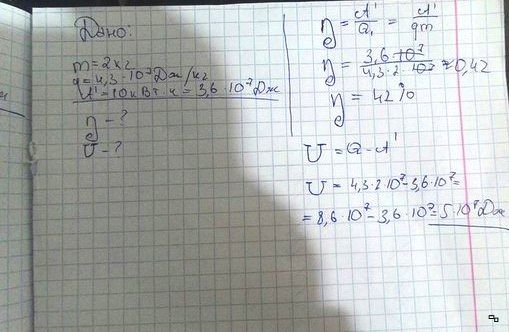 Дано:
m = 2 кг
q = 4,3·10⁷ Дж/кг
A' = 10 кВт·ч = 3,6·10⁷ Дж
η - ?
U - ?
η = A'/Q₁ = A'/qm
η = 3,6·10⁷/4,3·2·10⁷ ≈ 0,42
η = 42%
U = Q - A'
U = 4,3·2·10⁷ - 3,6·10⁷ =
= 8,6·10⁷ - 3,6·10⁷ = 5·10⁷ Дж